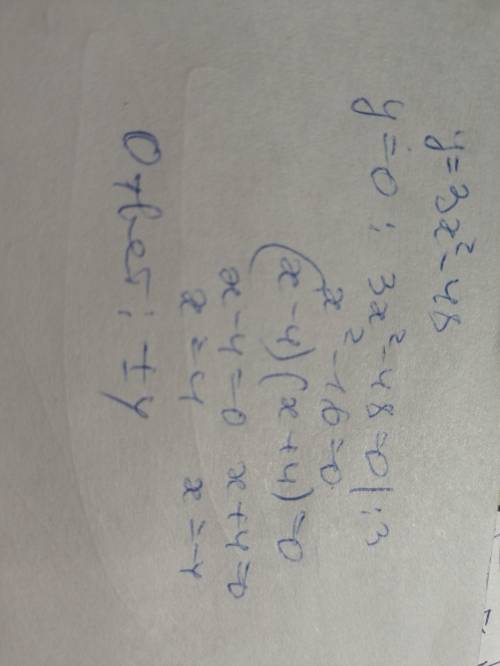 y=3x²-48
y=0: 3x²-48=0|:3
x²-16=0
(x-4)(x+4)=0
x-4=0 x+4=0
x=4 x=-4
Ответ: ±4